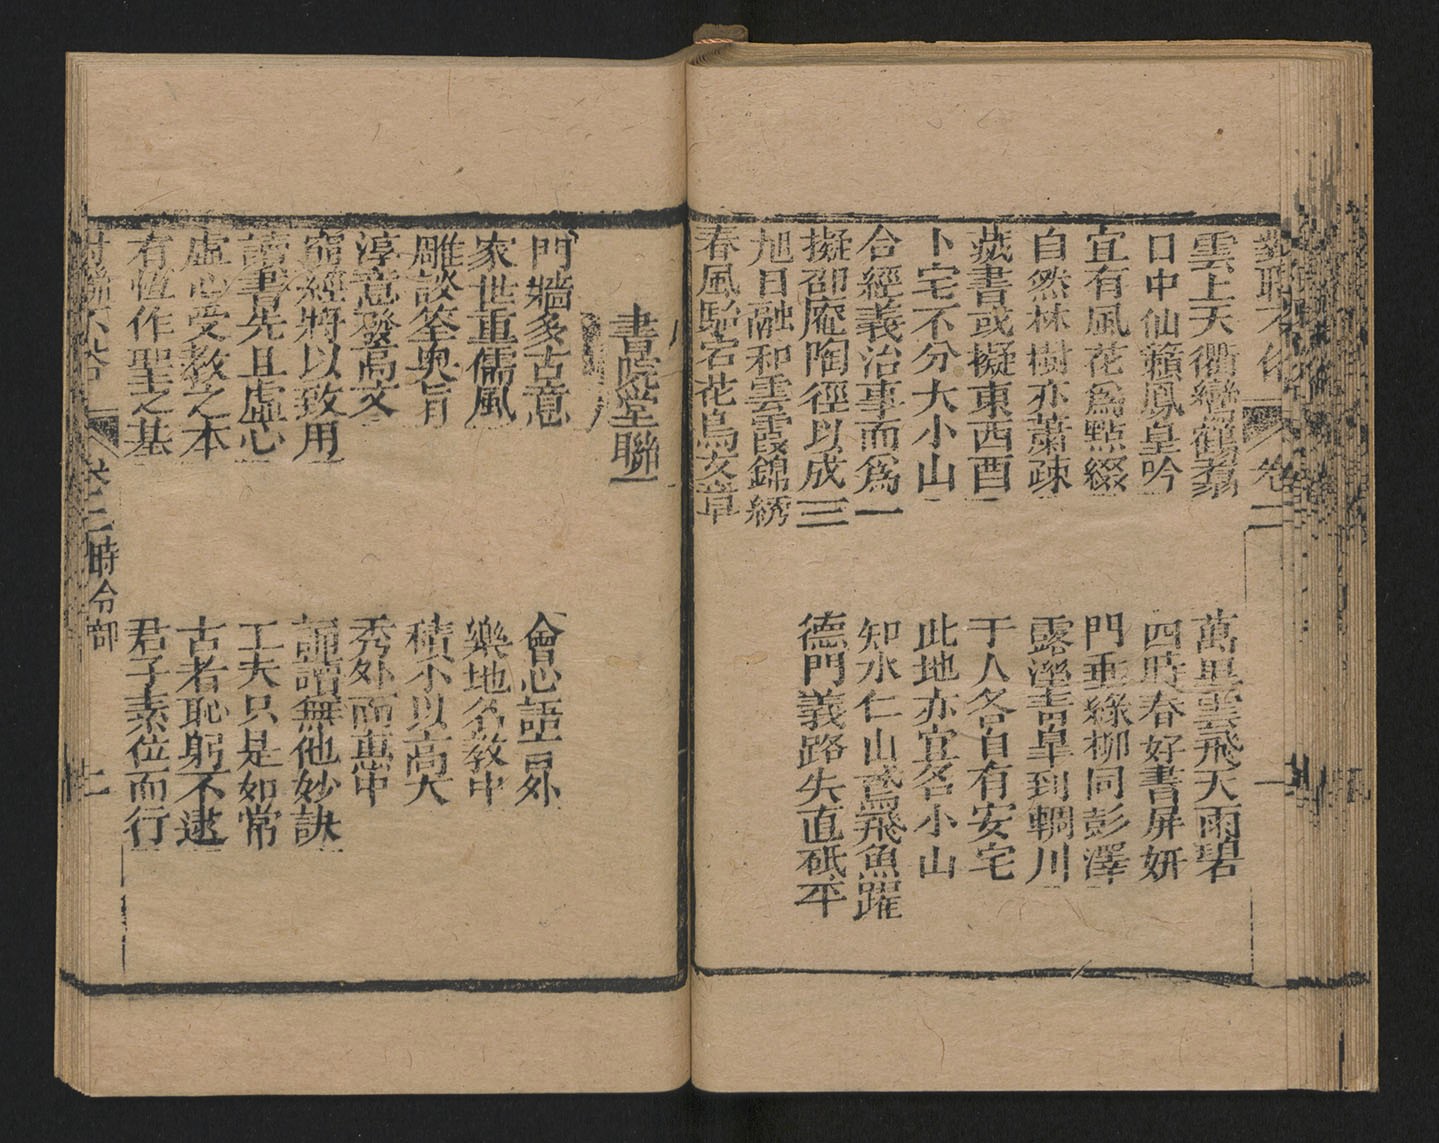 卷二
雲上天衢鸞鶴翥
萬里雲飛天雨碧
口中仙籟鳳皇吟
四時春好書屏妍
宜有風花爲點綴
門垂綠柳同彭澤
自然林樹亦蕭疎
露溼青皐到輞川
藏書或擬東西酉
于人各自有安宅
卜宅不分大小山
此地亦宜名小山
合經義治事而爲一
知水仁山鳶飛魚躍
擬邵庵陶徑以成三
德門義路矢直砥平
旭日融和雲霞錦綉
春風駘宕花鳥文章
書院堂聯
門牆多古意
會心語言外
家世重儒風
樂地名教中
雕談筌奧旨
積小以高大
淳意發高文
秀外而惠中
窮經將以致用
誦讀無他妙訣
讀書先且虛心
工夫只是如常
虛心受教之本
古者恥躬不逮
有恆作聖之基
君子素位而行
卷二 時令部